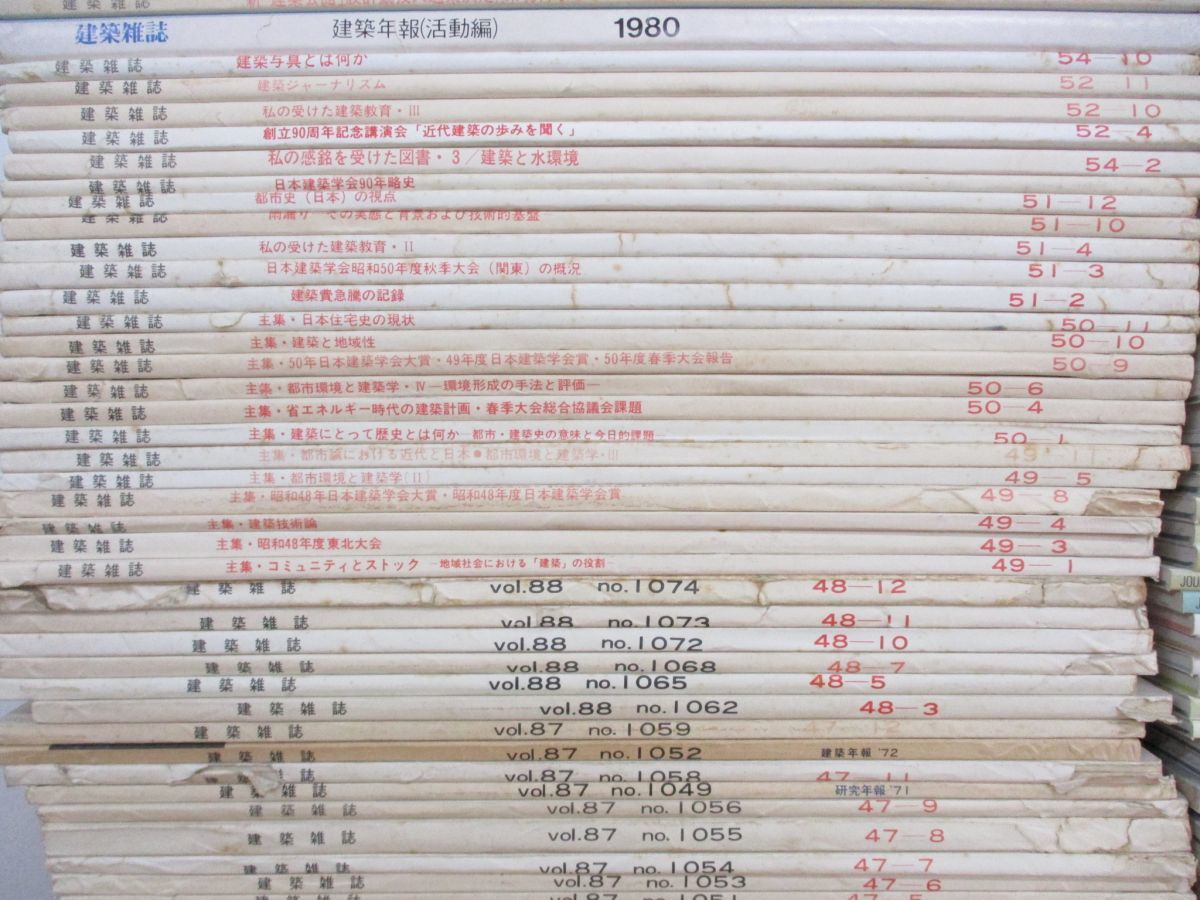 建築雑誌 建築年報(活動編) 1980
建築雑誌 建築写真とは何か 54-10
建築雑誌 建築ジャーナリズム 52-11
建築雑誌 私の受けた建築教育・III 52-10
建築雑誌 創立90周年記念講演会「近代建築の歩みを聞く」 52-4
建築雑誌 私の感銘を受けた図書・3/建築と水環境 54-2
建築雑誌 日本建築学会90年略史
建築雑誌 都市史(日本)の視点 51-12
建築雑誌 その実態と背景および技術的基盤 51-10
建築雑誌 私の受けた建築教育・II 51-4
建築雑誌 日本建築学会昭和50年度秋季大会(関東)の概況 51-3
建築雑誌 建築費急騰の記録 51-2
建築雑誌 主集・日本住宅史の現状 50-11
建築雑誌 主集・建築と地域性 50-10
建築雑誌 主集・50年日本建築学会大賞・49年度日本建築学会賞・50年度春季大会報告 50-9
建築雑誌 主集・都市環境と建築学・IV―環境形成の手法と評価― 50-6
建築雑誌 主集・省エネルギー時代の建築計画・春季大会総合協議会課題 50-4
建築雑誌 主集・建築にとって歴史とは何か―都市・建築史の意味と今日的課題― 50-1
建築雑誌 主集・都市論における近代と日本●都市環境と建築学・III 49-11
建築雑誌 主集・都市環境と建築学(II) 49-5
建築雑誌 主集・昭和48年日本建築学会大賞・昭和48年度日本建築学会賞 49-8
建築雑誌 主集・建築技術論 49-4
建築雑誌 主集・昭和48年度東北大会 49-3
建築雑誌 主集・コミュニティとストック―地域社会における「建築」の役割― 49-1
建築雑誌 vol.88 no.1074 48-12
建築雑誌 vol.88 no.1073 48-11
建築雑誌 vol.88 no.1072 48-10
建築雑誌 vol.88 no.1068 48-7
建築雑誌 vol.88 no.1065 48-5
建築雑誌 vol.88 no.1062 48-3
建築雑誌 vol.87 no.1059 47-12
建築雑誌 vol.87 no.1052 建築年報'72
建築雑誌 vol.87 no.1058 47-11
建築雑誌 vol.87 no.1049 研究年報'71
建築雑誌 vol.87 no.1056 47-9
建築雑誌 vol.87 no.1055 47-8
建築雑誌 vol.87 no.1054 47-7
建築雑誌 vol.87 no.1053 47-6
建築雑誌 vol.87 no.1051 47-5
JOU